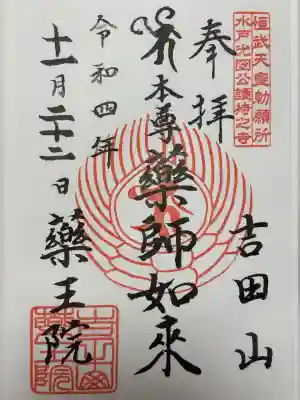 桓武天皇勅願所
水戸光圀公護持之寺
奉拝
吉田山
本尊薬師如来
令和四年
十一月二十二日
薬王院